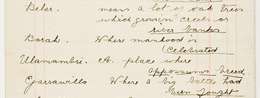 Beler. means a lot of oak trees
which grown in creek or
river banks
Borah. Where manhood is
Celebrated
Ulamambri. A. place where
Oppossums breed
Garrawillo Where a big battle had
been fought